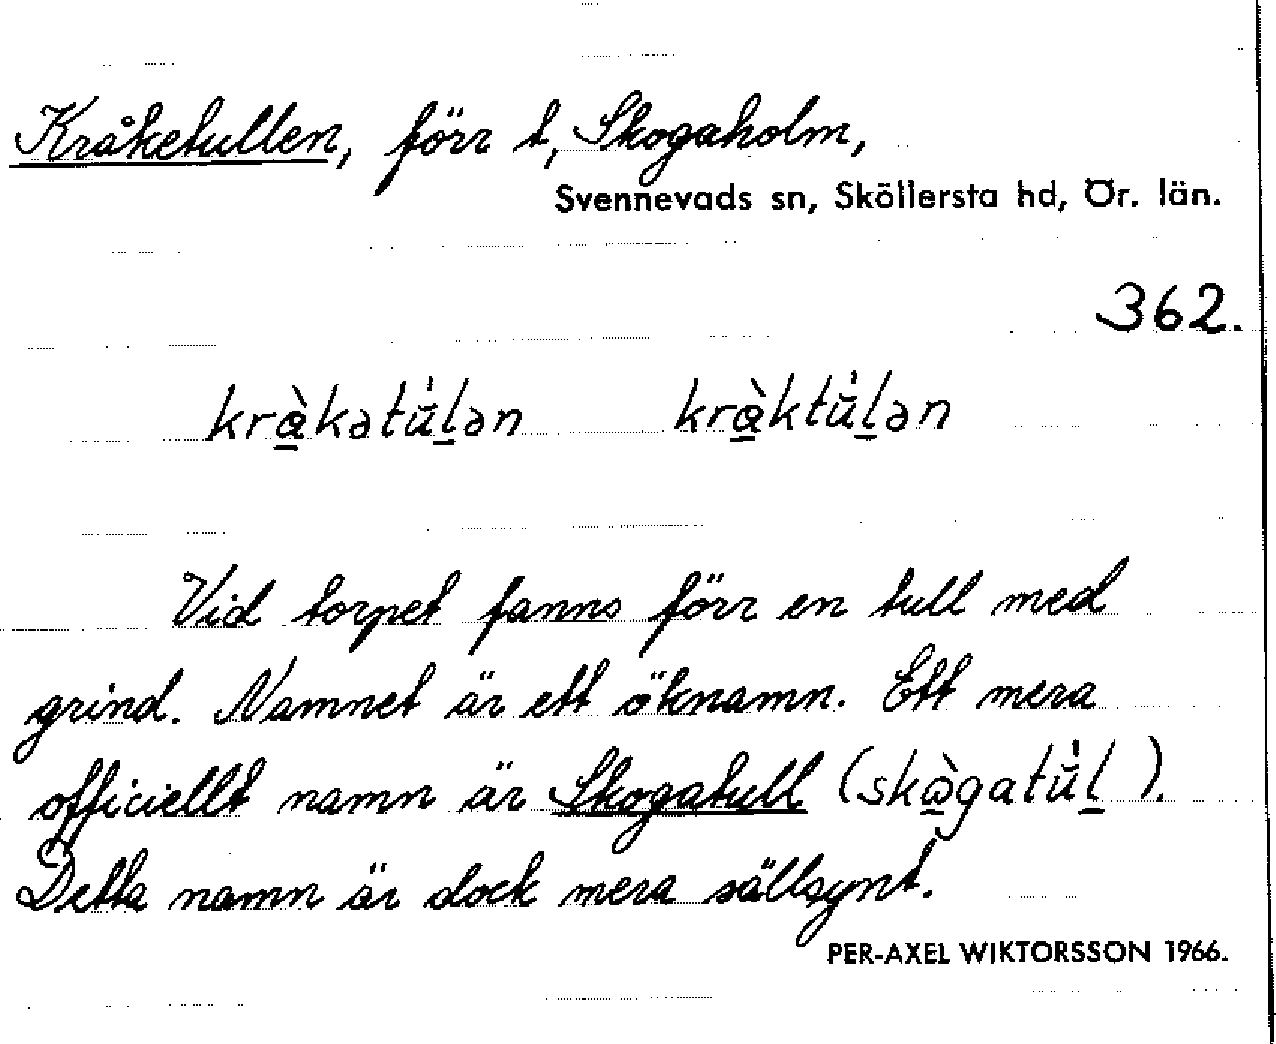 Kråketullen, förr t, Skogaholm,
Svennevads sn, Sköllersta hd, Ör. län.
362.
kràkatu̍lan kràktu̍lan
Vid torpet fanns förr en tull med
grind. Namnet är ett öknamn. Ett mera
officiellt namn är Skogatull (skògatu̍l).
Detta namn är dock mera sällsynt.
PER-AXEL WIKTORSSON 1966.